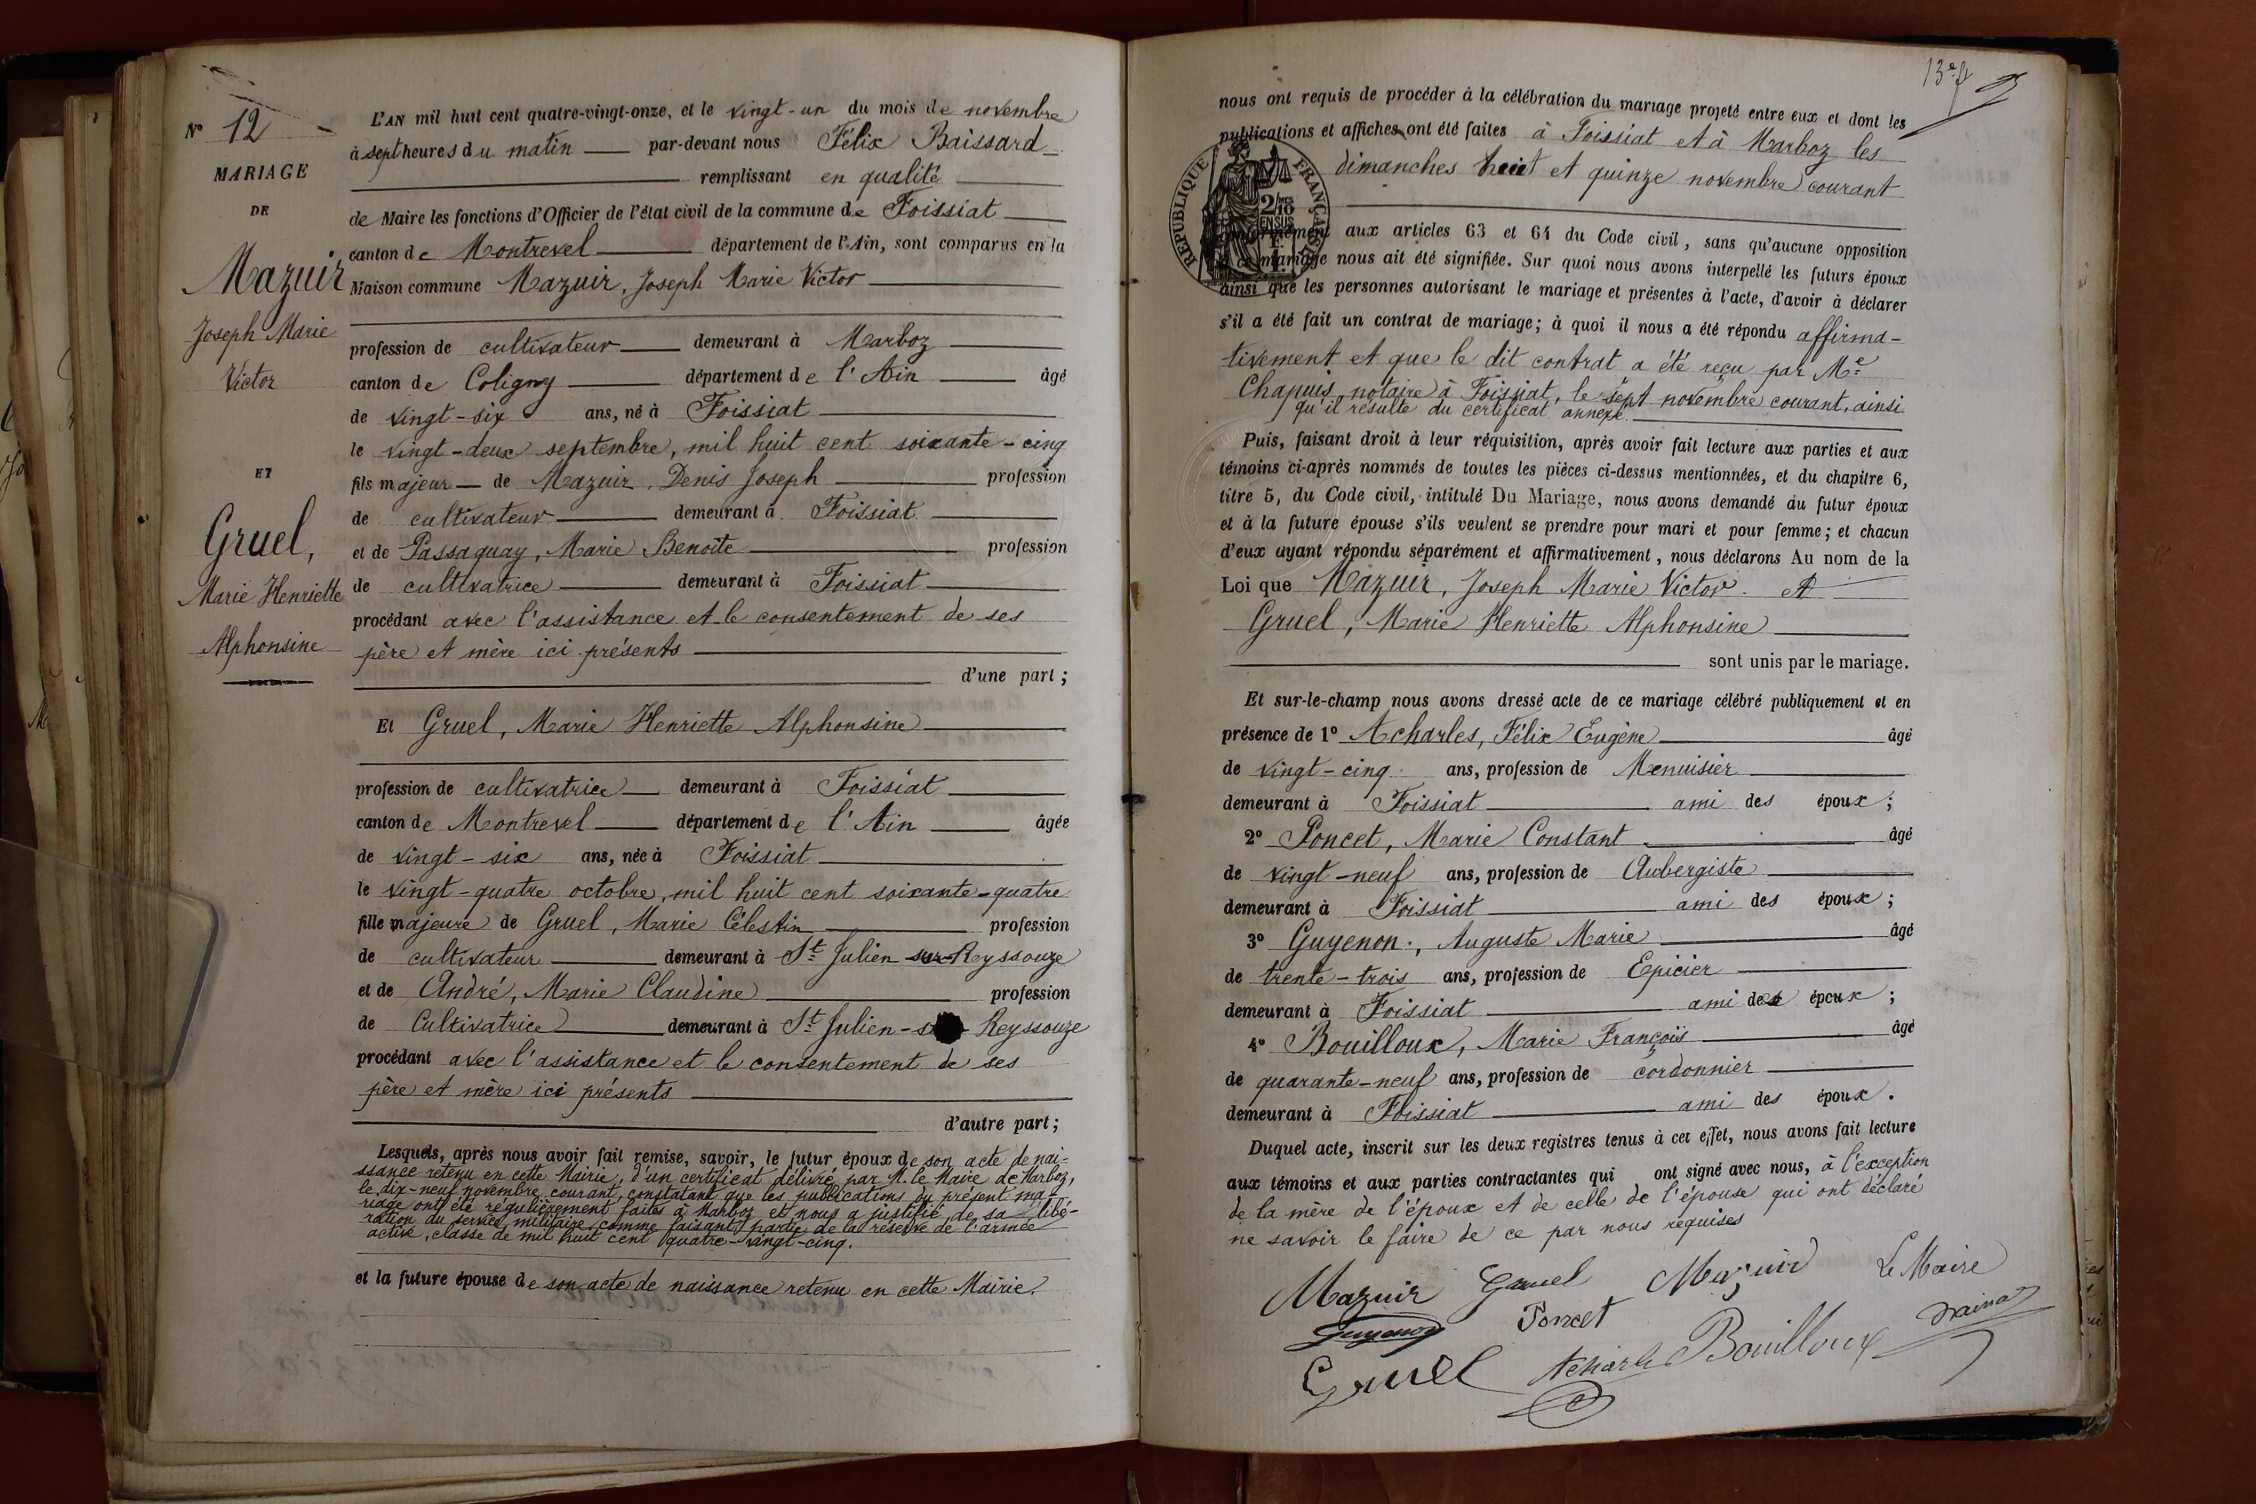 N° 12
MARIAGE
DE
Mazuir
Joseph Marie
Victor
ET
Gruel,
Marie Henriette
Alphonsine
L'AN mil huit cent quatre-vingt-onze, et le vingt-un du mois de novembre
à sept heures du matin par-devant nous Félix Baissard
remplissant en qualité
de Maire les fonctions d'Officier de l'état civil de la commune de Foissiat
canton de Montrevel département de l'Ain, sont comparus en la
Maison commune Mazuir, Joseph Marie Victor
profession de cultivateur demeurant à Marboz
canton de Coligny département de l'Ain âgé
de vingt-six ans, né à Foissiat
le vingt-deux septembre, mil huit cent soixante-cinq
fils majeur de Mazuir, Denis Joseph profession
de cultivateur demeurant à Foissiat
et de Passaquay, Marie Benoite profession
de cultivatrice demeurant à Foissiat
procédant avec l'assistance et le consentement de ses
père et mère ici présents
d'une part;
Et Gruel, Marie Henriette Alphonsine
profession de cultivatrice demeurant à Foissiat
canton de Montrevel département de l'Ain âgée
de vingt-six ans, née à Foissiat
le vingt-quatre octobre, mil huit cent soixante-quatre
fille majeure de Gruel, Marie Célestin profession
de cultivateur demeurant à St Julien-sur-Reyssouze
et de André, Marie Claudine profession
de Cultivatrice demeurant à St Julien-s Reyssouze
procédant avec l'assistance et le consentement de ses
père et mère ici présents
d'autre part;
Lesquels, après nous avoir fait remise, savoir, le futur époux de son acte de nai-
ssance retenu en cette Mairie, d'un certificat délivré par M. le Maire de Marboz,
le dix-neuf novembre courant, constatant que les publications du présent ma-
riage ont été régulièrement faites à Marboz et nous a justifié de sa libé-
ration du service militaire comme faisant partie de la réserve de l'armée
active, classe de mil huit cent quatre-vingt-cinq.
et la future épouse de son acte de naissance retenu en cette Mairie.
13e f
nous ont requis de procéder à la célébration du mariage projeté entre eux et dont les
publications et affiches ont été faites à Foissiat et à Marboz les
dimanches huit et quinze novembre courant
RÉPUBLIQUE FRANÇAISE
2/10
EN SUS
aux articles 63 et 64 du Code civil, sans qu'aucune opposition
mariage nous ait été signifiée. Sur quoi nous avons interpellé les futurs époux
ainsi que les personnes autorisant le mariage et présentes à l'acte, d'avoir à déclarer
s'il a été fait un contrat de mariage; à quoi il nous a été répondu affirma-
tivement et que le dit contrat a été reçu par Me
Chapuis, notaire à Foissiat, le sept novembre courant, ainsi
qu'il résulte du certificat annexé.
Puis, faisant droit à leur réquisition, après avoir fait lecture aux parties et aux
témoins ci-après nommés de toutes les pièces ci-dessus mentionnées, et du chapitre 6,
titre 5, du Code civil, intitulé Du Mariage, nous avons demandé au futur époux
et à la future épouse s'ils veulent se prendre pour mari et pour femme; et chacun
d'eux ayant répondu séparément et affirmativement, nous déclarons Au nom de la
Loi que Mazuir, Joseph Marie Victor. et
Gruel, Marie Henriette Alphonsine
sont unis par le mariage.
Et sur-le-champ nous avons dressé acte de ce mariage célébré publiquement et en
présence de 1° Acharles, Félix Eugène âgé
de vingt-cinq ans, profession de Menuisier
demeurant à Foissiat ami des époux;
2° Poncet, Marie Constant âgé
de vingt-neuf ans, profession de Aubergiste
demeurant à Foissiat ami des époux;
3° Guyenon, Auguste Marie âgé
de trente-trois ans, profession de Epicier
demeurant à Foissiat ami des époux;
4° Bouilloux, Marie François âgé
de quarante-neuf ans, profession de cordonnier
demeurant à Foissiat ami des époux.
Duquel acte, inscrit sur les deux registres tenus à cet effet, nous avons fait lecture
aux témoins et aux parties contractantes qui ont signé avec nous, à l'exception
de la mère de l'époux et de celle de l'épouse qui ont déclaré
ne savoir le faire de ce par nous requises
Mazuir Gruel Mazuir Le Maire
Guyenon Poncet
Gruel Acharles Bouilloux